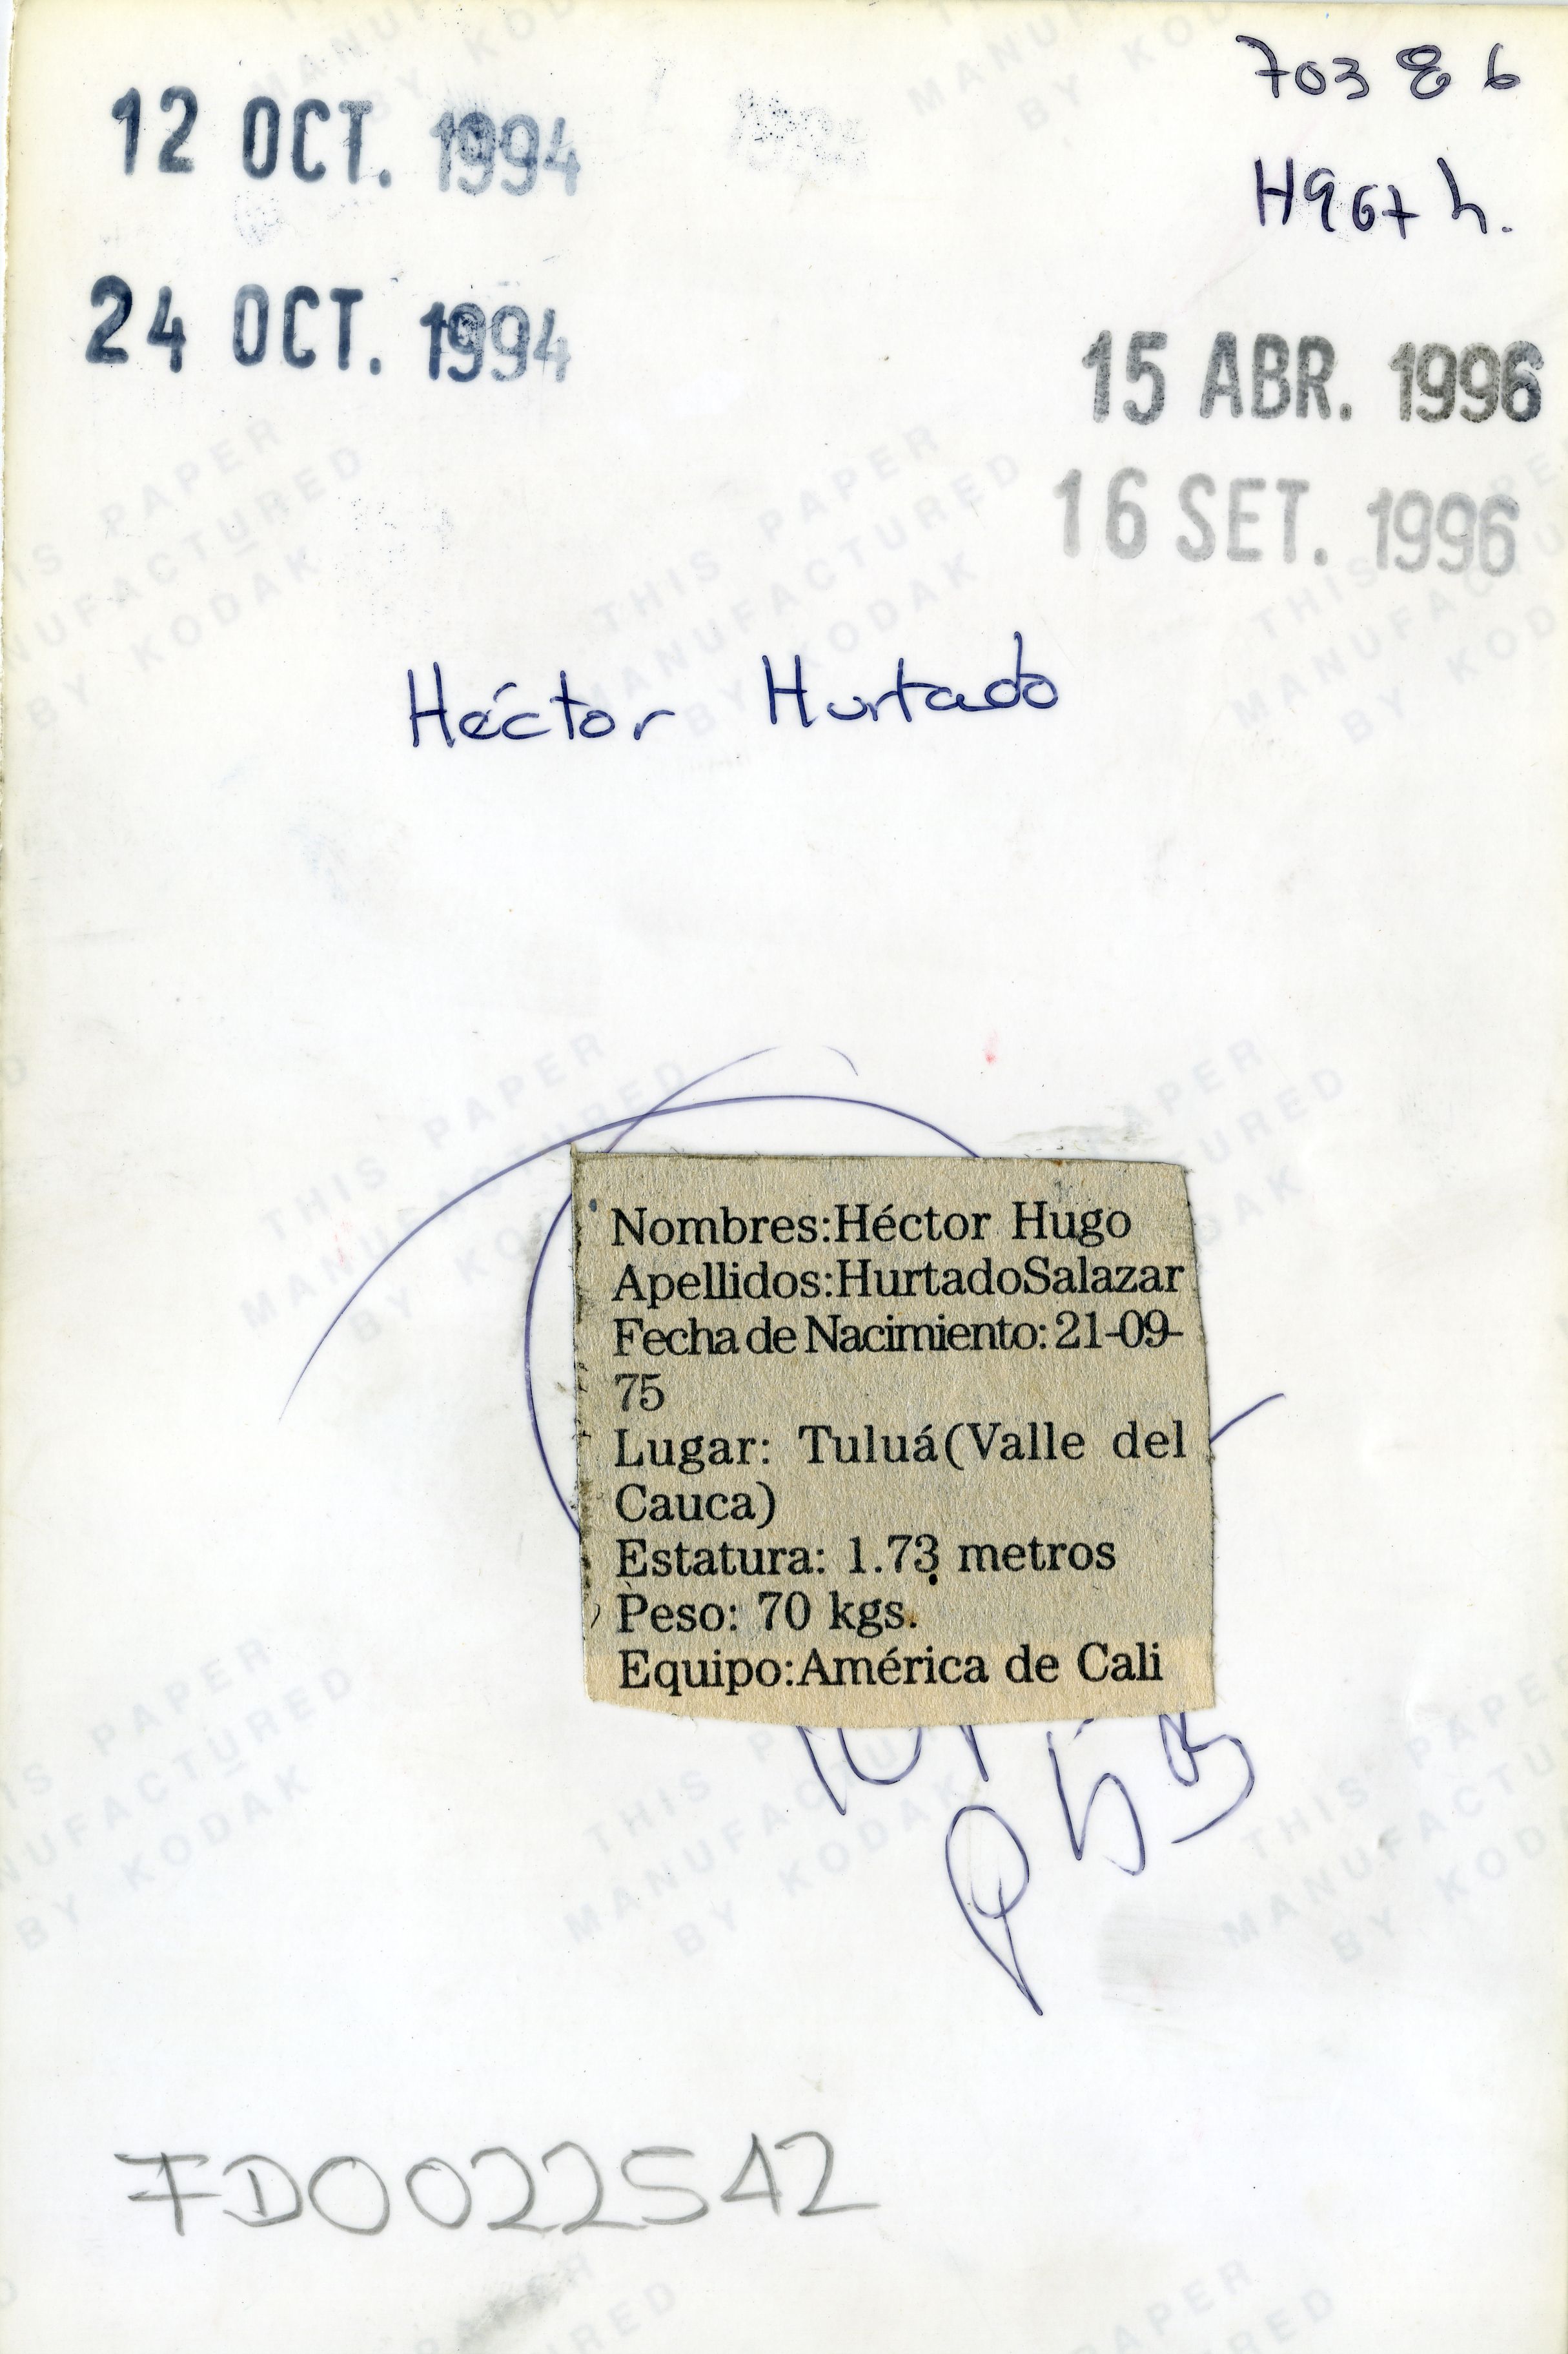 703 86
H967 h.
12 OCT. 1994
24 OCT. 1994
15 ABR. 1996
16 SET. 1996
Héctor Hurtado
Nombres:Héctor Hugo
Apellidos:HurtadoSalazar
Fecha de Nacimiento: 21-09-
75
Lugar: Tuluá(Valle del
Cauca)
Estatura: 1.73 metros
Peso: 70 kgs.
Equipo:América de Cali
FD0022542
THIS PAPER
MANUFACTURED
BY KODAK